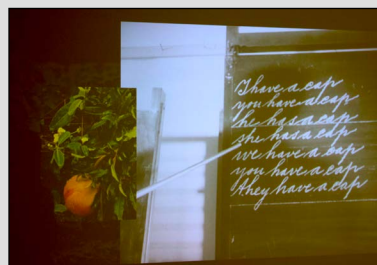 I have a cap
you have a cap
he has a cap
she has a cap
we have a cap
you have a cap
they have a cap